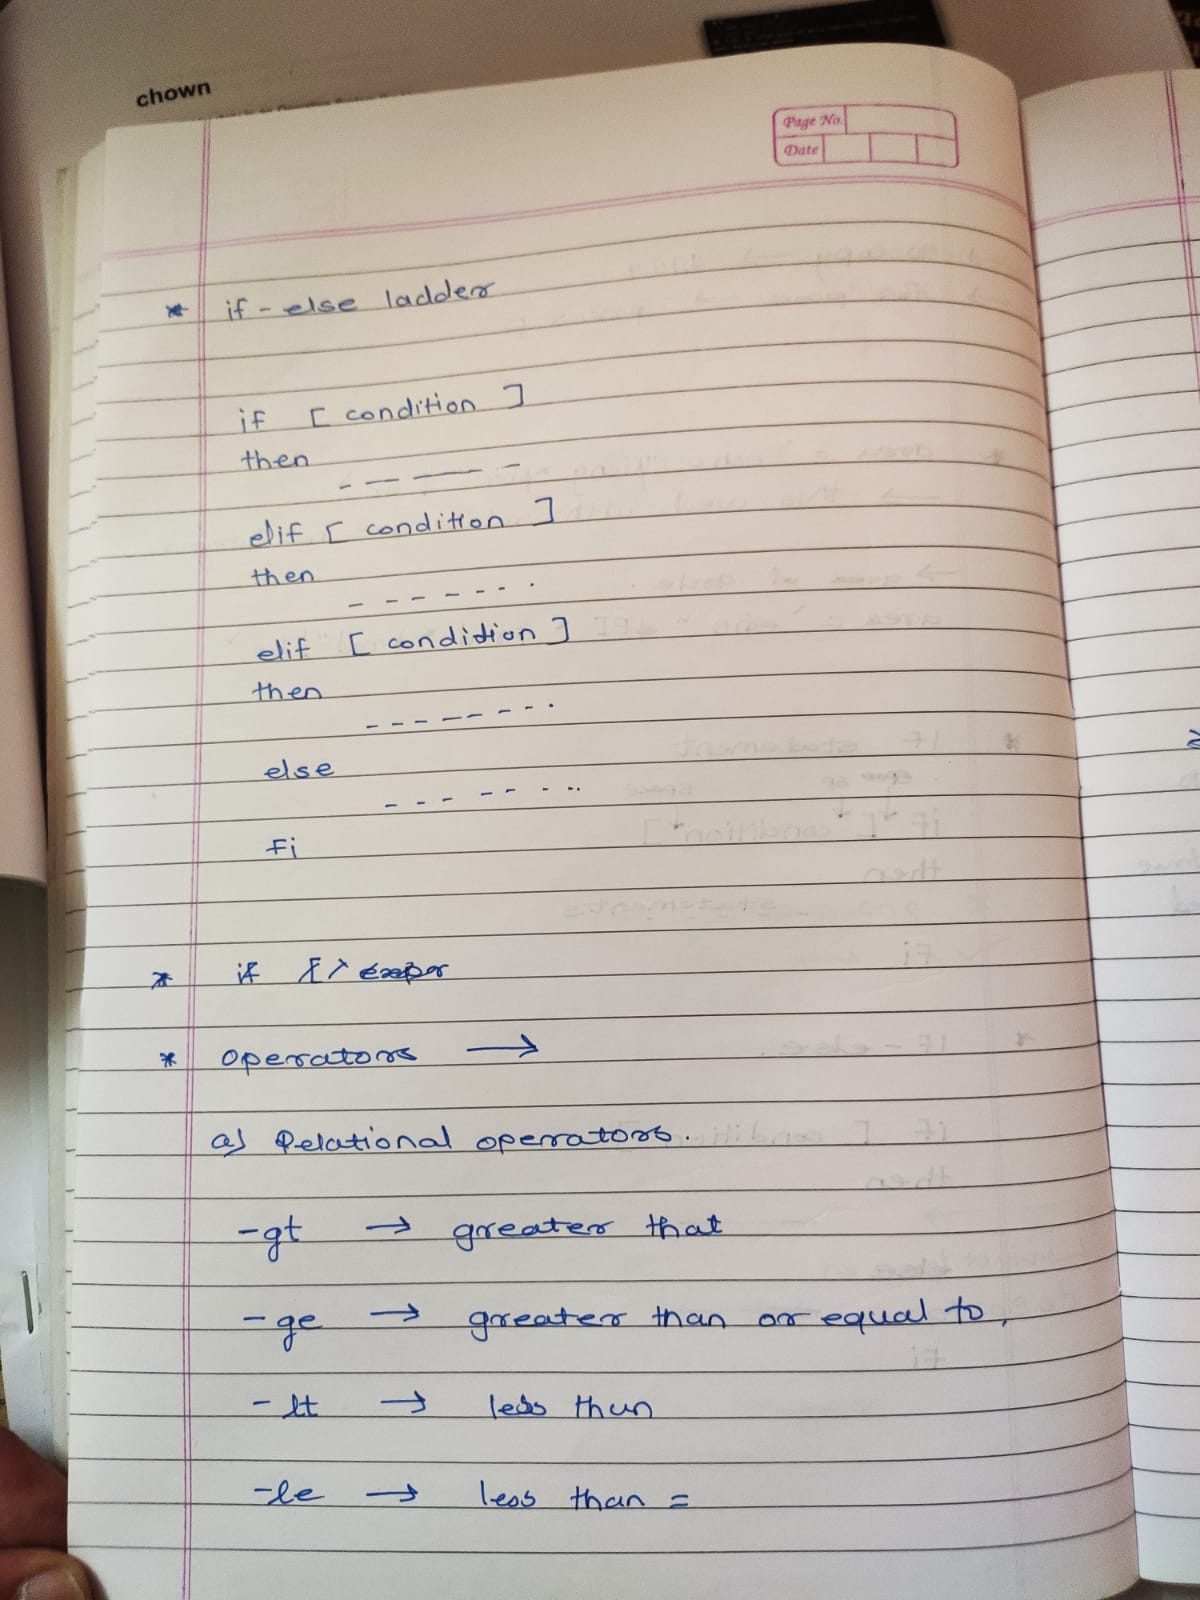 chown
Page No.
Date
* if - else ladder
if [ condition ]
then
- - - - -
elif [ condition ]
then
- - - - - - - .
elif [ condidion ]
then
- - - - - - - - .
else
- - - - - - - ..
Fi
* if
* operators →
a) Relational operators.
-gt → greater that
-ge → greater than or equal to,
-lt → less than
-le → less than =